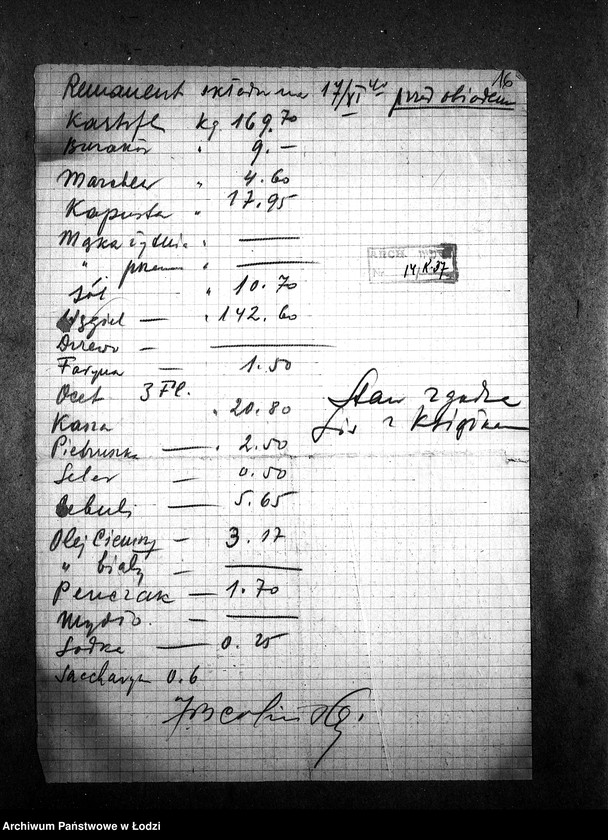 16
Remanent składu na 17/XI 40 przed obiadem
Kartofl kg 169.70
Buraków " 9.—
Marchew " 4.60
Kapusta " 17.95
Mąka żytnia " —
" pszen " —
Sól — " 10.70
Węgiel — " 142.60
Drzewo — —
Faryna — 1.50
Ocet 3 Fl.
Kasza " 20.80
Pietruszka — " 2.50
Seler — 0.50
Cebuli — 5.65
Olej Ciemny — 3.17
" biały — —
Penczak — 1.70
Mydło. — —
Sodka — 0.25
Saccharyn 0.6
ARCH.
14.X.37
Stan zgadza
się z Książkami
Archiwum Państwowe w Łodzi